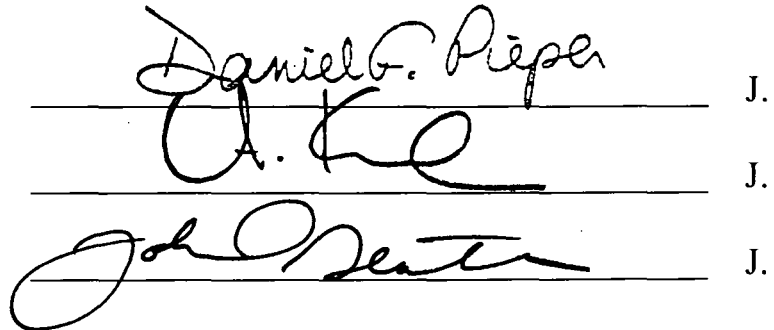 Daniel G. Pieper J.
A. J.
John J.